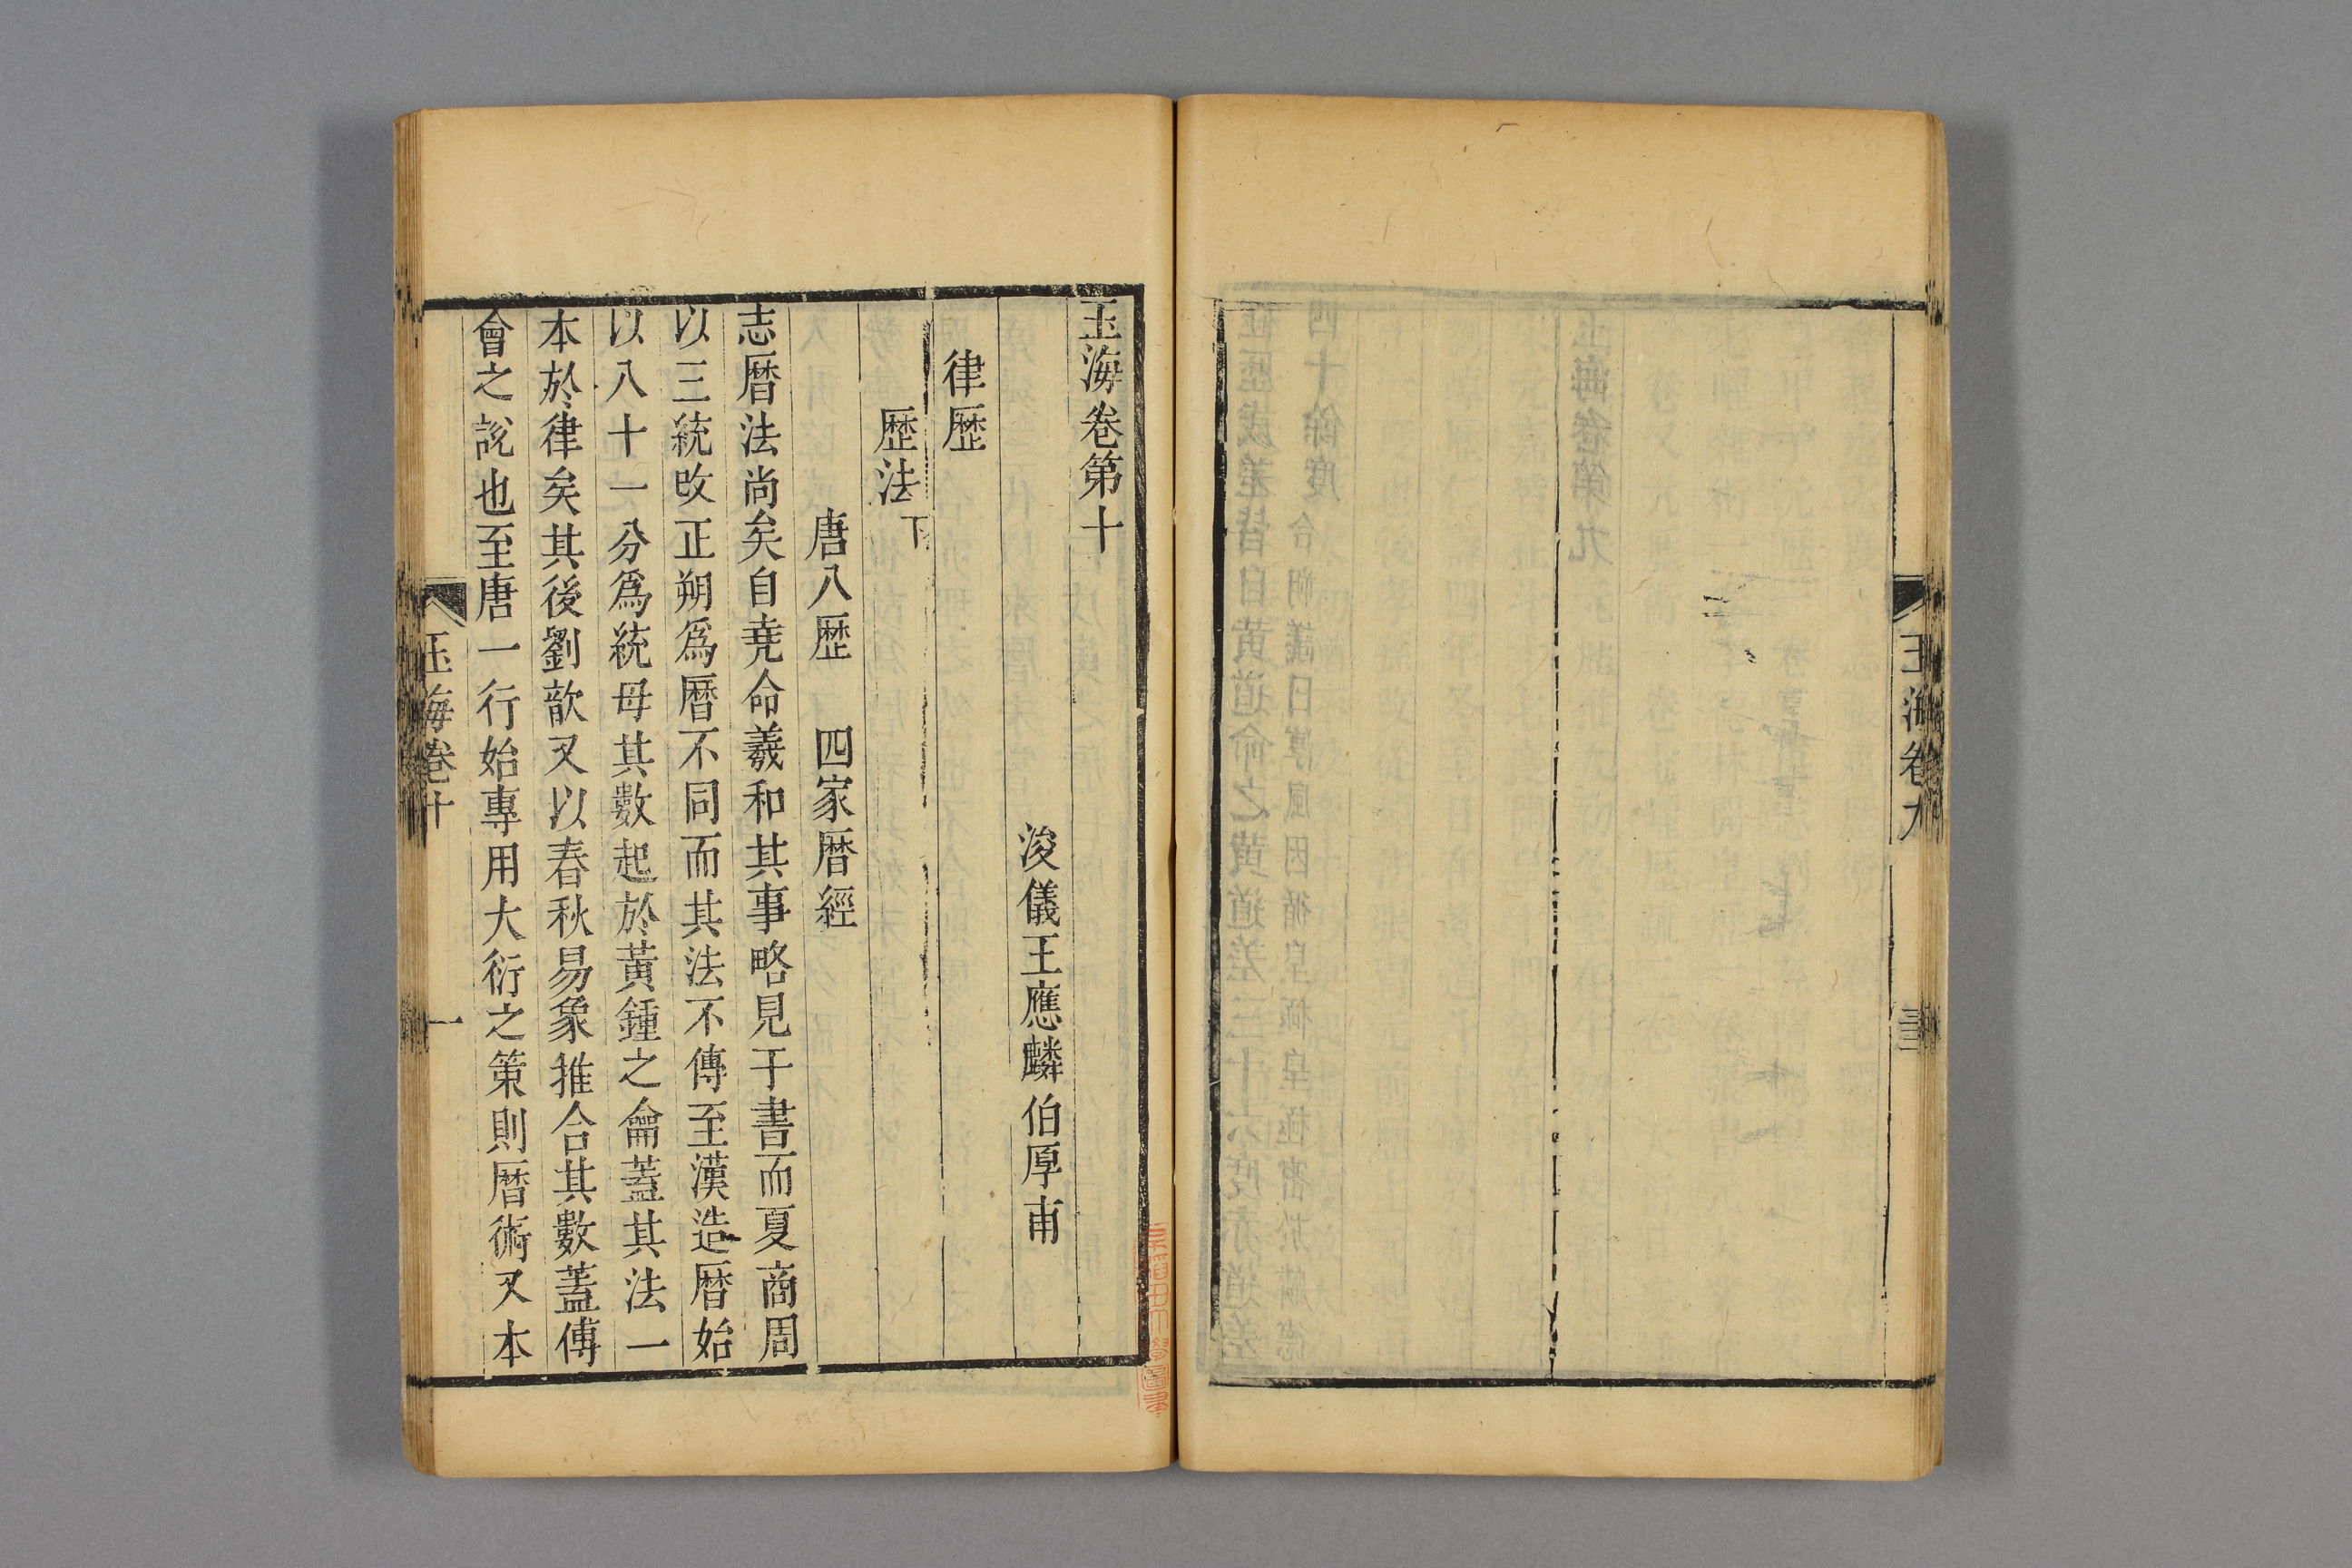 玉海卷九
玉海卷第十
浚儀王應麟伯厚甫
律歷
歷法下
唐八歷　四家暦經
志暦法尚矣自堯命羲和其事略見于書而夏商周
以三統改正朔爲暦不同而其法不傳至漢造暦始
以八十一分爲統母其數起於黃鍾之龠蓋其法一
本於律矣其後劉歆又以春秋易象推合其數蓋傅
會之說也至唐一行始專用大衍之策則暦術又本
玉海卷十
一